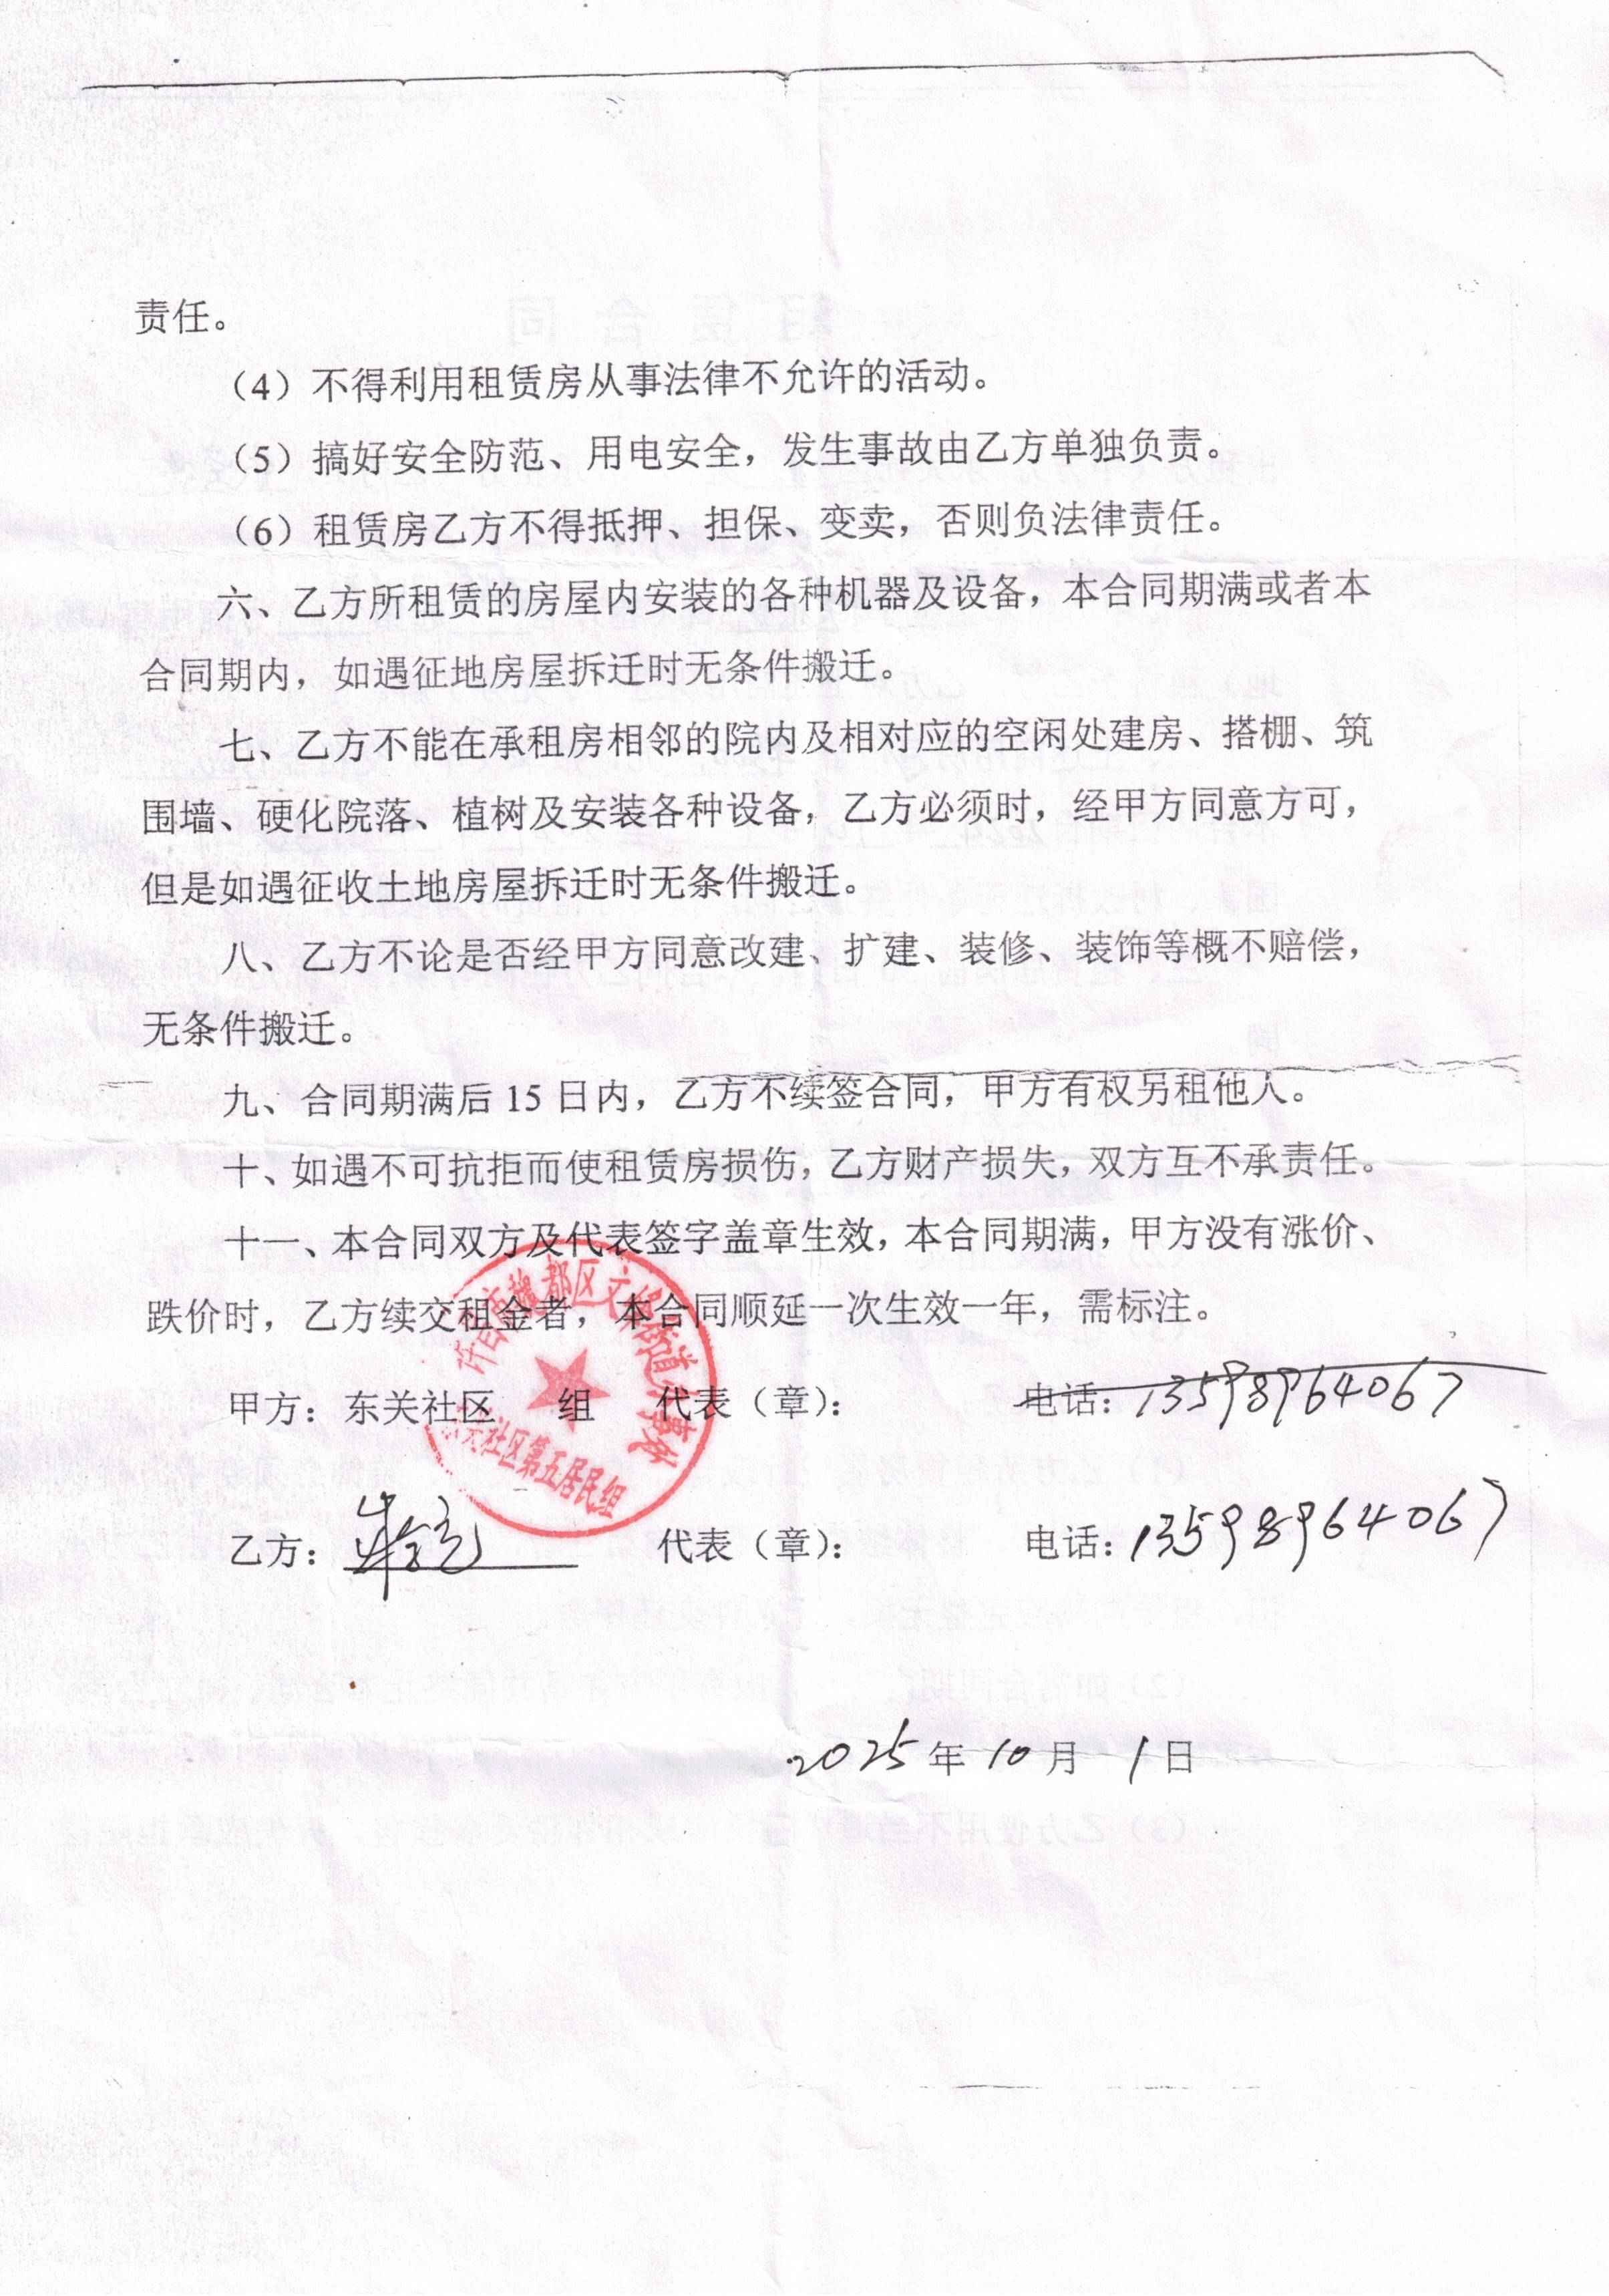 责任。
（4）不得利用租赁房从事法律不允许的活动。
（5）搞好安全防范、用电安全，发生事故由乙方单独负责。
（6）租赁房乙方不得抵押、担保、变卖，否则负法律责任。
六、乙方所租赁的房屋内安装的各种机器及设备，本合同期满或者本
合同期内，如遇征地房屋拆迁时无条件搬迁。
七、乙方不能在承租房相邻的院内及相对应的空闲处建房、搭棚、筑
围墙、硬化院落、植树及安装各种设备，乙方必须时，经甲方同意方可，
但是如遇征收土地房屋拆迁时无条件搬迁。
八、乙方不论是否经甲方同意改建、扩建、装修、装饰等概不赔偿，
无条件搬迁。
九、合同期满后 15 日内，乙方不续签合同，甲方有权另租他人。
十、如遇不可抗拒而使租赁房损伤，乙方财产损失，双方互不承责任。
十一、本合同双方及代表签字盖章生效，本合同期满，甲方没有涨价、
跌价时，乙方续交租金者，本合同顺延一次生效一年，需标注。
许昌市魏都区文峰街道办事处
东关社区第五居民组
甲方：东关社区 组 代表（章）： 电话：13598964067
乙方： 代表（章）： 电话：13598964067
2025年10月1日